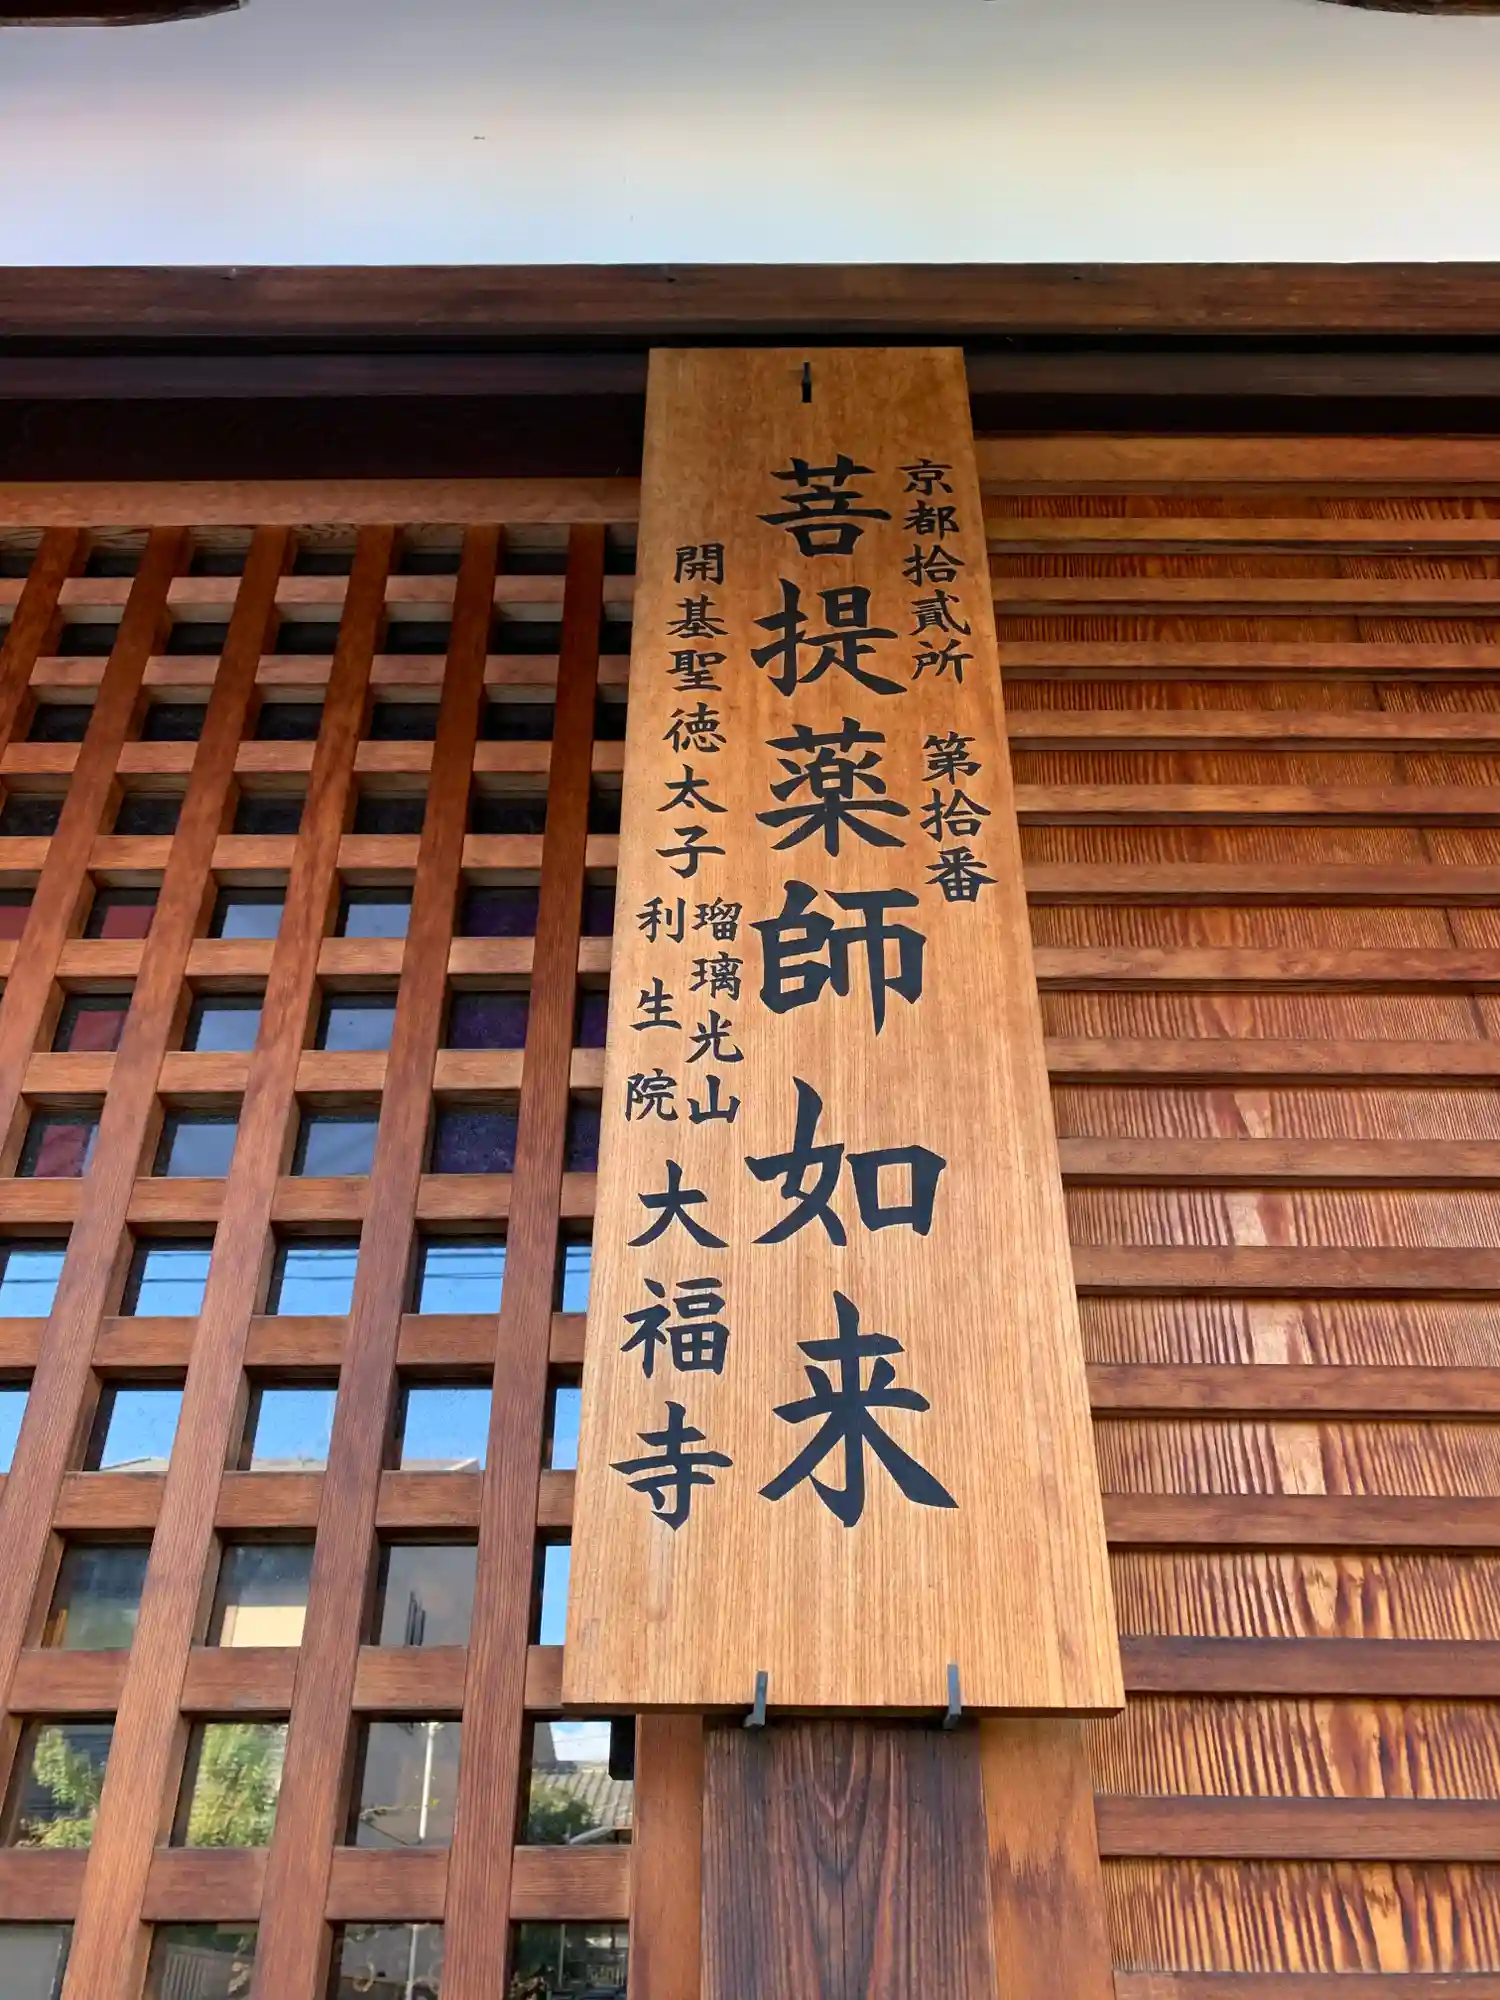 京都拾貳所 第拾番
菩提薬師如来
開基聖徳太子
瑠璃光山
利生院
大福寺